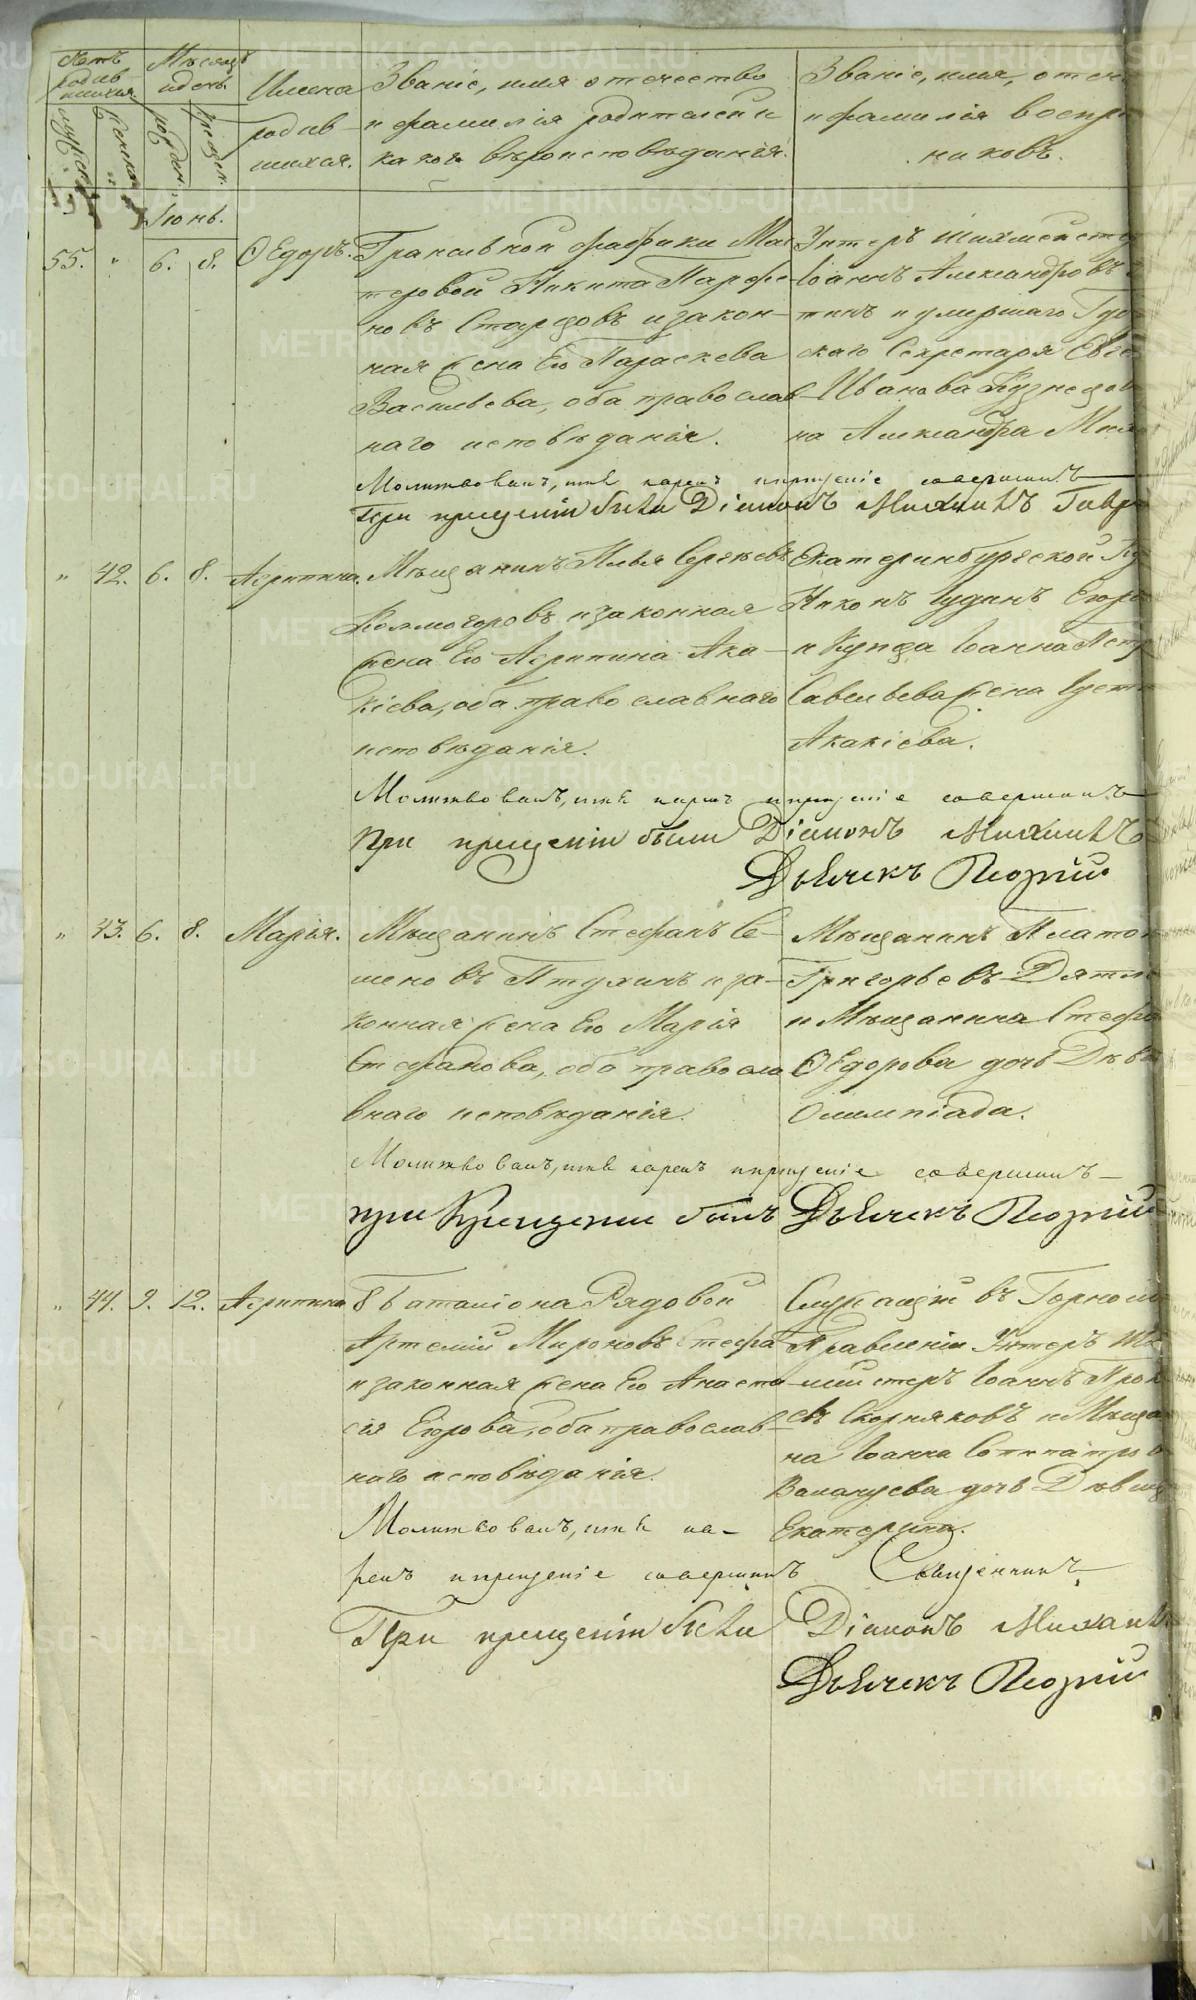 Счетъ родив-шихся.
Мѣсяцъ и день.
Имена родив-шихся.
Званіе, имя отечество и фамилія родителей и какого вѣроисповѣданія.
Званіе, имя, отеч
и фамилія воспрі
никовъ.
мужеска
женска
рожден.
крещен.
Іюнь.
55. " 6. 8. Ѳедоръ.
Гранильной фабрики Мас
теровой Никита Парфе-
новъ Старцовъ и закон-
ная жена его Параскева
Васильева, оба православ-
наго исповѣданія.
Унтеръ шихмейсте
Іоаннъ Александровъ
тинъ и умершаго Гу
скаго Секретаря
Иванова Кузнецов
на Александра
Молитвовалъ, имя нарекъ и крещеніе совершилъ
При крещеніи были Діаконъ Михаилъ Гавр
" 42. 6. 8. Агрипина.
Мѣщанинъ Илья Сергѣевъ
Колмогоровъ и законная
жена его Агрипина Ака-
кіева, оба православнаго
исповѣданія.
Екатеринбургской
Никонъ Іудинъ
и Купца Іоанна Петр
Савельева жена Іуст
Акакіева.
Молитвовалъ, имя нарекъ и крещеніе совершилъ
При крещеніи были Діаконъ Михаилъ
Дьячекъ Георгій
" 43. 6. 8. Марія.
Мѣщанинъ Стефанъ Се-
меновъ Птухинъ и за-
конная жена его Марія
Стефанова, оба правосла
внаго исповѣданія.
Мѣщанинъ Платон
Григорьевъ Дятл
и Мѣщанина Стефа
Ѳедорова дочь Дѣв
Олимпіада.
Молитвовалъ, имя нарекъ и крещеніе совершилъ
при Крещеніи былъ Дьячекъ Георгій
" 44. 9. 12. Агрипина
8 Баталіона Рядовой
Артемій Мироновъ Стефа
и законная жена его Анаста-
сія Егорова, оба православ-
наго исповѣданія.
Служащій въ Горном
Правленіи Унтеръ Ши
мейстеръ Іоаннъ Прок
евъ Скорняковъ и Мѣща
на Іоанна Сопипатров
дочь Дѣвиц
Екатерина.
Молитвовалъ, имя на-
рекъ и крещеніе совершилъ Священникъ
При крещеніи были Діаконъ Михаилъ
Дьячекъ Георгій
METRIKI.GASO-URAL.RU